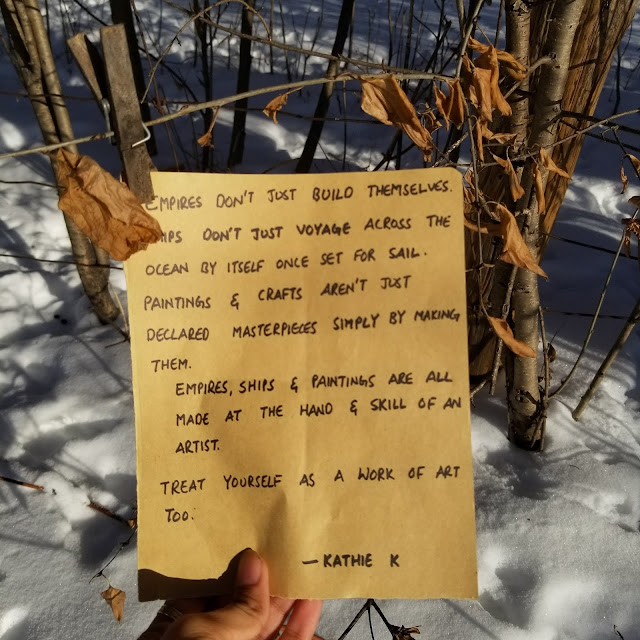 EMPIRES DON'T JUST BUILD THEMSELVES.
SHIPS DON'T JUST VOYAGE ACROSS THE
OCEAN BY ITSELF ONCE SET FOR SAIL.
PAINTINGS & CRAFTS AREN'T JUST
DECLARED MASTERPIECES SIMPLY BY MAKING
THEM.
EMPIRES, SHIPS & PAINTINGS ARE ALL
MADE AT THE HAND & SKILL OF AN
ARTIST.
TREAT YOURSELF AS A WORK OF ART
TOO.
— KATHIE K